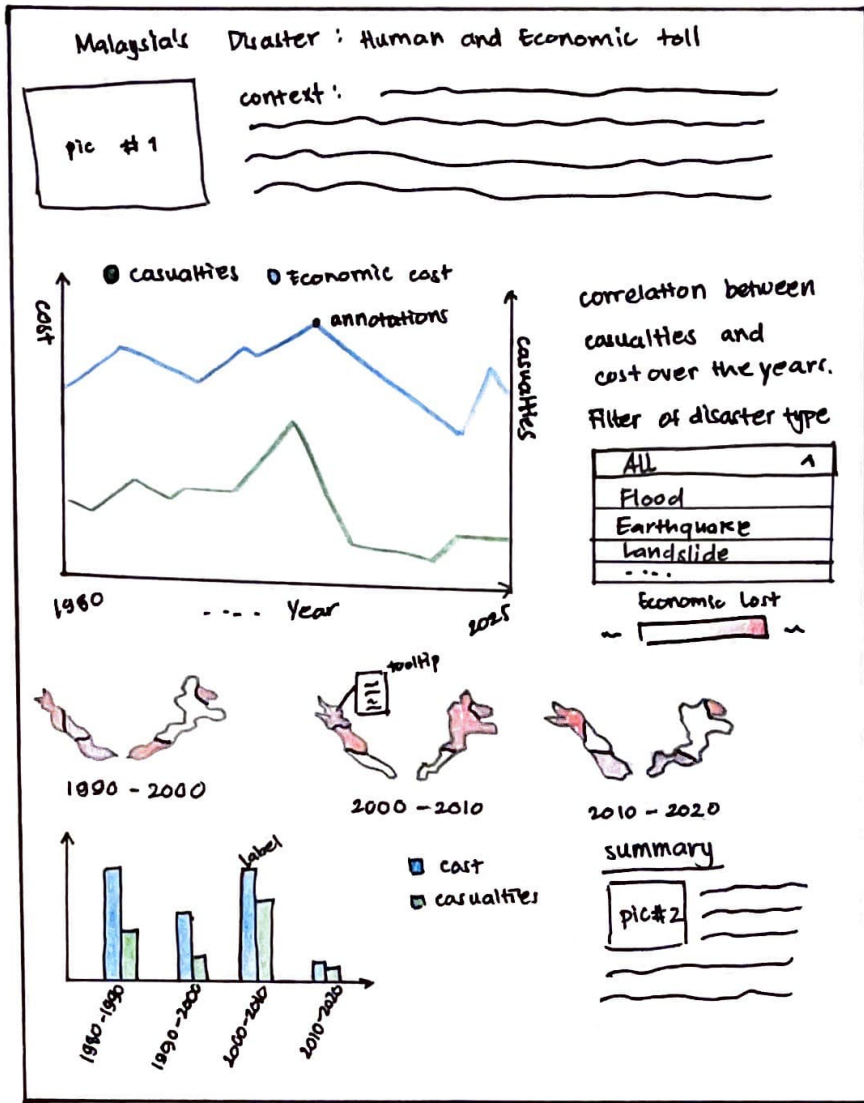 Malaysia's Disaster : Human and Economic toll
pic #1
context :
casualties Economic cost
cost
annotations
casualties
1980 .... Year 2025
correlation between
casualties and
cost over the years.
Filter of disaster type
All ^
Flood
Earthquake
Landslide
....
Economic Lost
~ ~
tooltip
1990 - 2000
2000 - 2010
2010 - 2020
label
cost
casualties
1980-1990
1990-2000
2000-2010
2010-2020
summary
pic#2